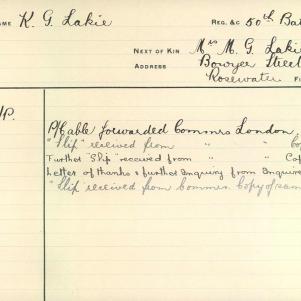 NAME K. G. Lakie REG. &C 50th Bat
NEXT OF KIN Mrs M. G. Lakie
ADDRESS Bowyer Street
Rosewater
/P.
P/Cable forwarded Commrs London,
"Slip" received from " "
Further "Slip" received from " " Cop
Letter of thanks & further Enquiry from Enquire
"Slip" received from Commrs. Copy of same